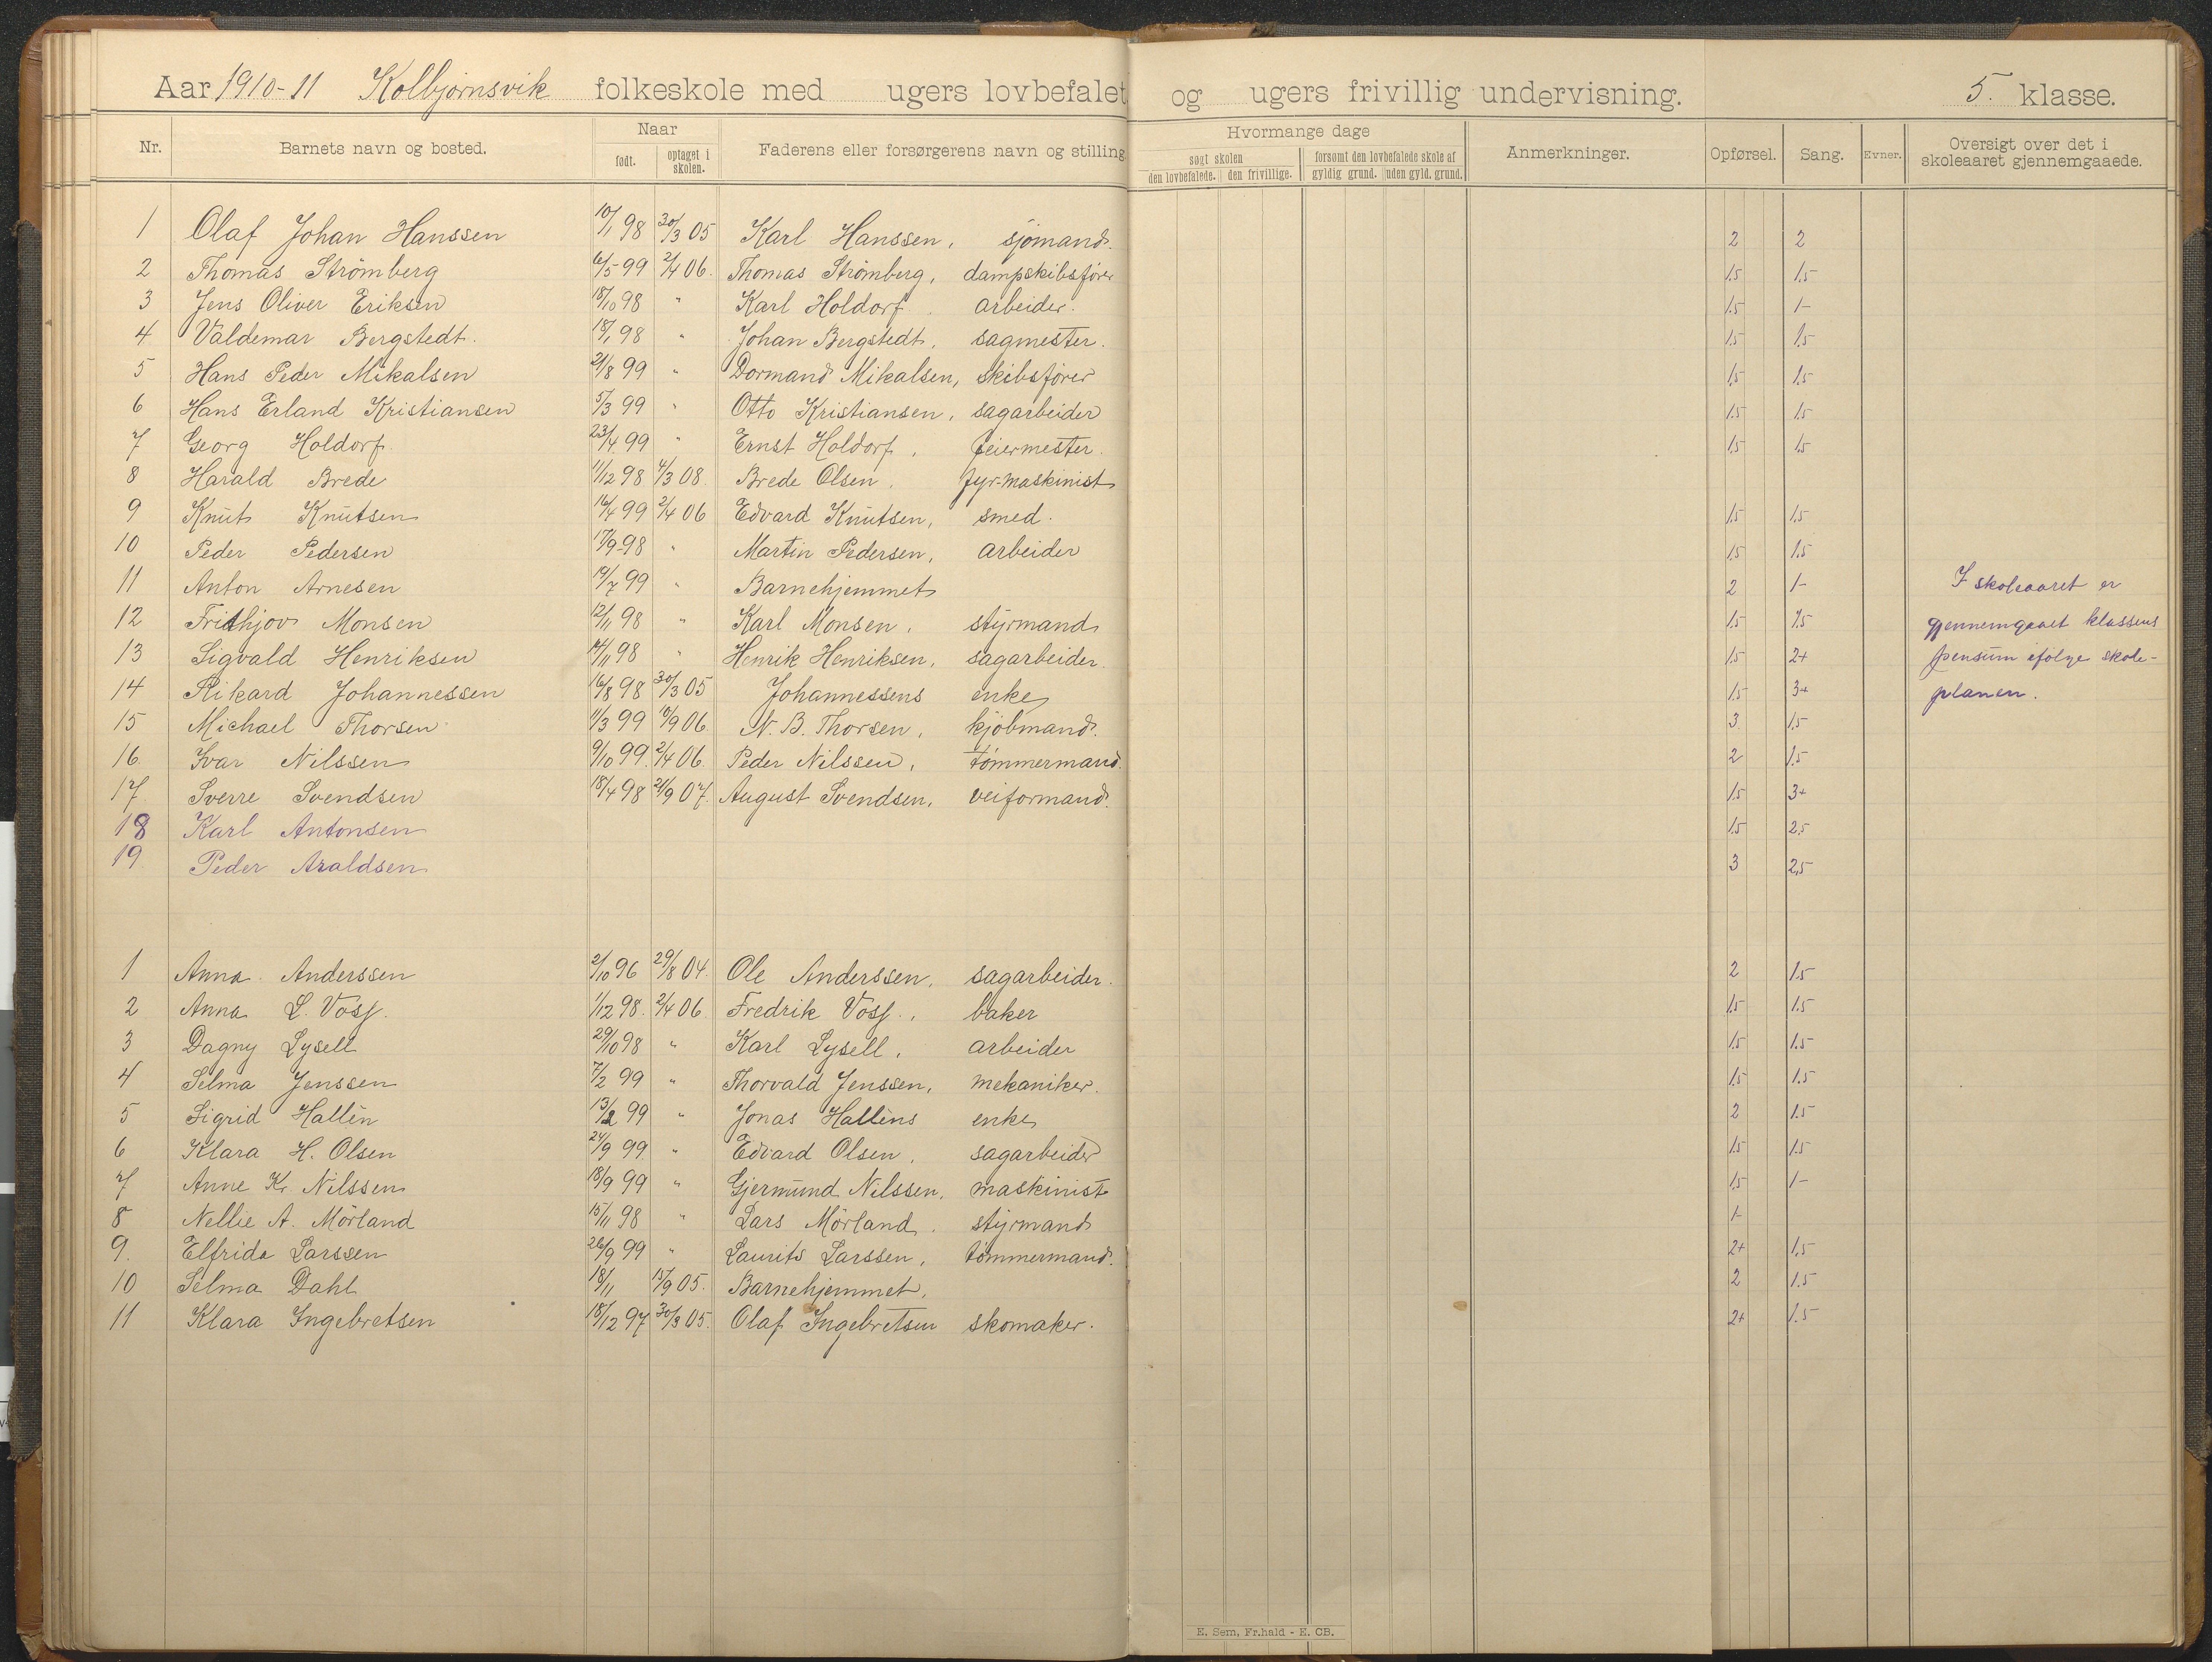 Aar 1910-11 Kolbjørnsvik folkeskole med ugers lovbefalet og ugers frivillig undervisning. 5. klasse.
Nr. Barnets navn og bosted. Naar født. optaget i skolen. Faderens eller forsørgerens navn og stilling Hvormange dage søgt skolen den lovbefalede. den frivillige. forsømt den lovbefalede skole af gyldig grund. uden gyld. grund. Anmerkninger. Opførsel. Sang. Evner. Oversigt over det i skoleaaret gjennemgaaede.
1 Olaf Johan Hanssen 10/1 98 30/3 05 Karl Hanssen, sjømand. 2 2
2 Thomas Strømberg 6/5 99 2/4 06. Thomas Strømberg, dampskibsfører 1.5 1.5
3 Jens Oliver Eriksen 18/10 98 " Karl Holdorf, arbeider. 1.5 1-
4 Valdemar Bergstedt. 18/1 98 " Johan Bergstedt, sagmester. 1.5 1.5
5 Hans Peder Mikalsen 21/8 99 " Dormand Mikalsen, skibsfører 1.5 1.5
6 Hans Erland Kristiansen 5/3 99 " Otto Kristiansen, sagarbeider 1.5 1.5
7 Georg Holdorf. 23/4 99 " Ernst Holdorf, feiermester. 1.5 1.5
8 Harald Brede 11/12 98 4/3 08. Brede Olsen, fyr-maskinist
9 Knut Knutsen 16/4 99 2/4 06 Edvard Knutsen, smed. 1.5 1.5
10 Peder Pedersen 17/9 98 " Martin Pedersen, arbeider 1.5 1.5
11 Anton Arnesen 19/7 99 " Barnehjemmet 2 1- I skoleaaret er
12 Frithjov Monsen 12/11 98 " Karl Monsen, styrmand 1.5 1.5 gjennemgaaet klassens
13 Sigvald Henriksen 14/11 98 " Henrik Henriksen, sagarbeider. 1.5 2+ pensum ifølge skole-
14 Rikard Johannessen 16/8 98 30/3 05 Johannessens enke 1.5 3+ planen.
15 Michael Thorsen 11/3 99 10/9 06. N. B. Thorsen, kjøbmand. 3 1.5
16. Ivar Nilssen 9/10 99. 2/4 06. Peder Nilssen, tømmermand. 2 1.5
17. Sverre Svendsen 18/4 98 21/9 07. August Svendsen, veiformand. 1.5 3+
18 Karl Antonsen 1.5 2.5
19 Peder Araldsen 3 2.5
1 Anna Anderssen 2/10 96 29/8 04. Ole Anderssen, sagarbeider. 2 1.5
2 Anna L. Voss. 1/12 98. 2/4 06. Fredrik Voss, baker 1.5 1.5
3 Dagny Lysell 29/10 98 " Karl Lysell, arbeider 1.5 1.5
4 Selma Jenssen 7/2 99 " Thorvald Jenssen, mekaniker. 1.5 1.5
5 Sigrid Hallén 13/2 99 " Jonas Halléns enke 2 1.5
6 Klara H. Olsen 24/9 99. " Edvard Olsen, sagarbeider 1.5 1.5
7 Anne K. Nilssen 18/9 99 " Gjermund Nilssen, maskinist 1.5 1-
8 Nellie A. Mørland 15/11 98 " Lars Mørland, styrmand 1-
9. Elfrida Larssen 26/9 99 " Laurits Larssen, tømmermand. 2+ 1.5
10 Selma Dahl 18/11 15/9 05. Barnehjemmet. 2 1.5
11 Klara Ingebretsen 18/12 97 30/3 05. Olaf Ingebretsen skomaker. 2+ 1.5
E. Sem, Fr.hald - E. CB.